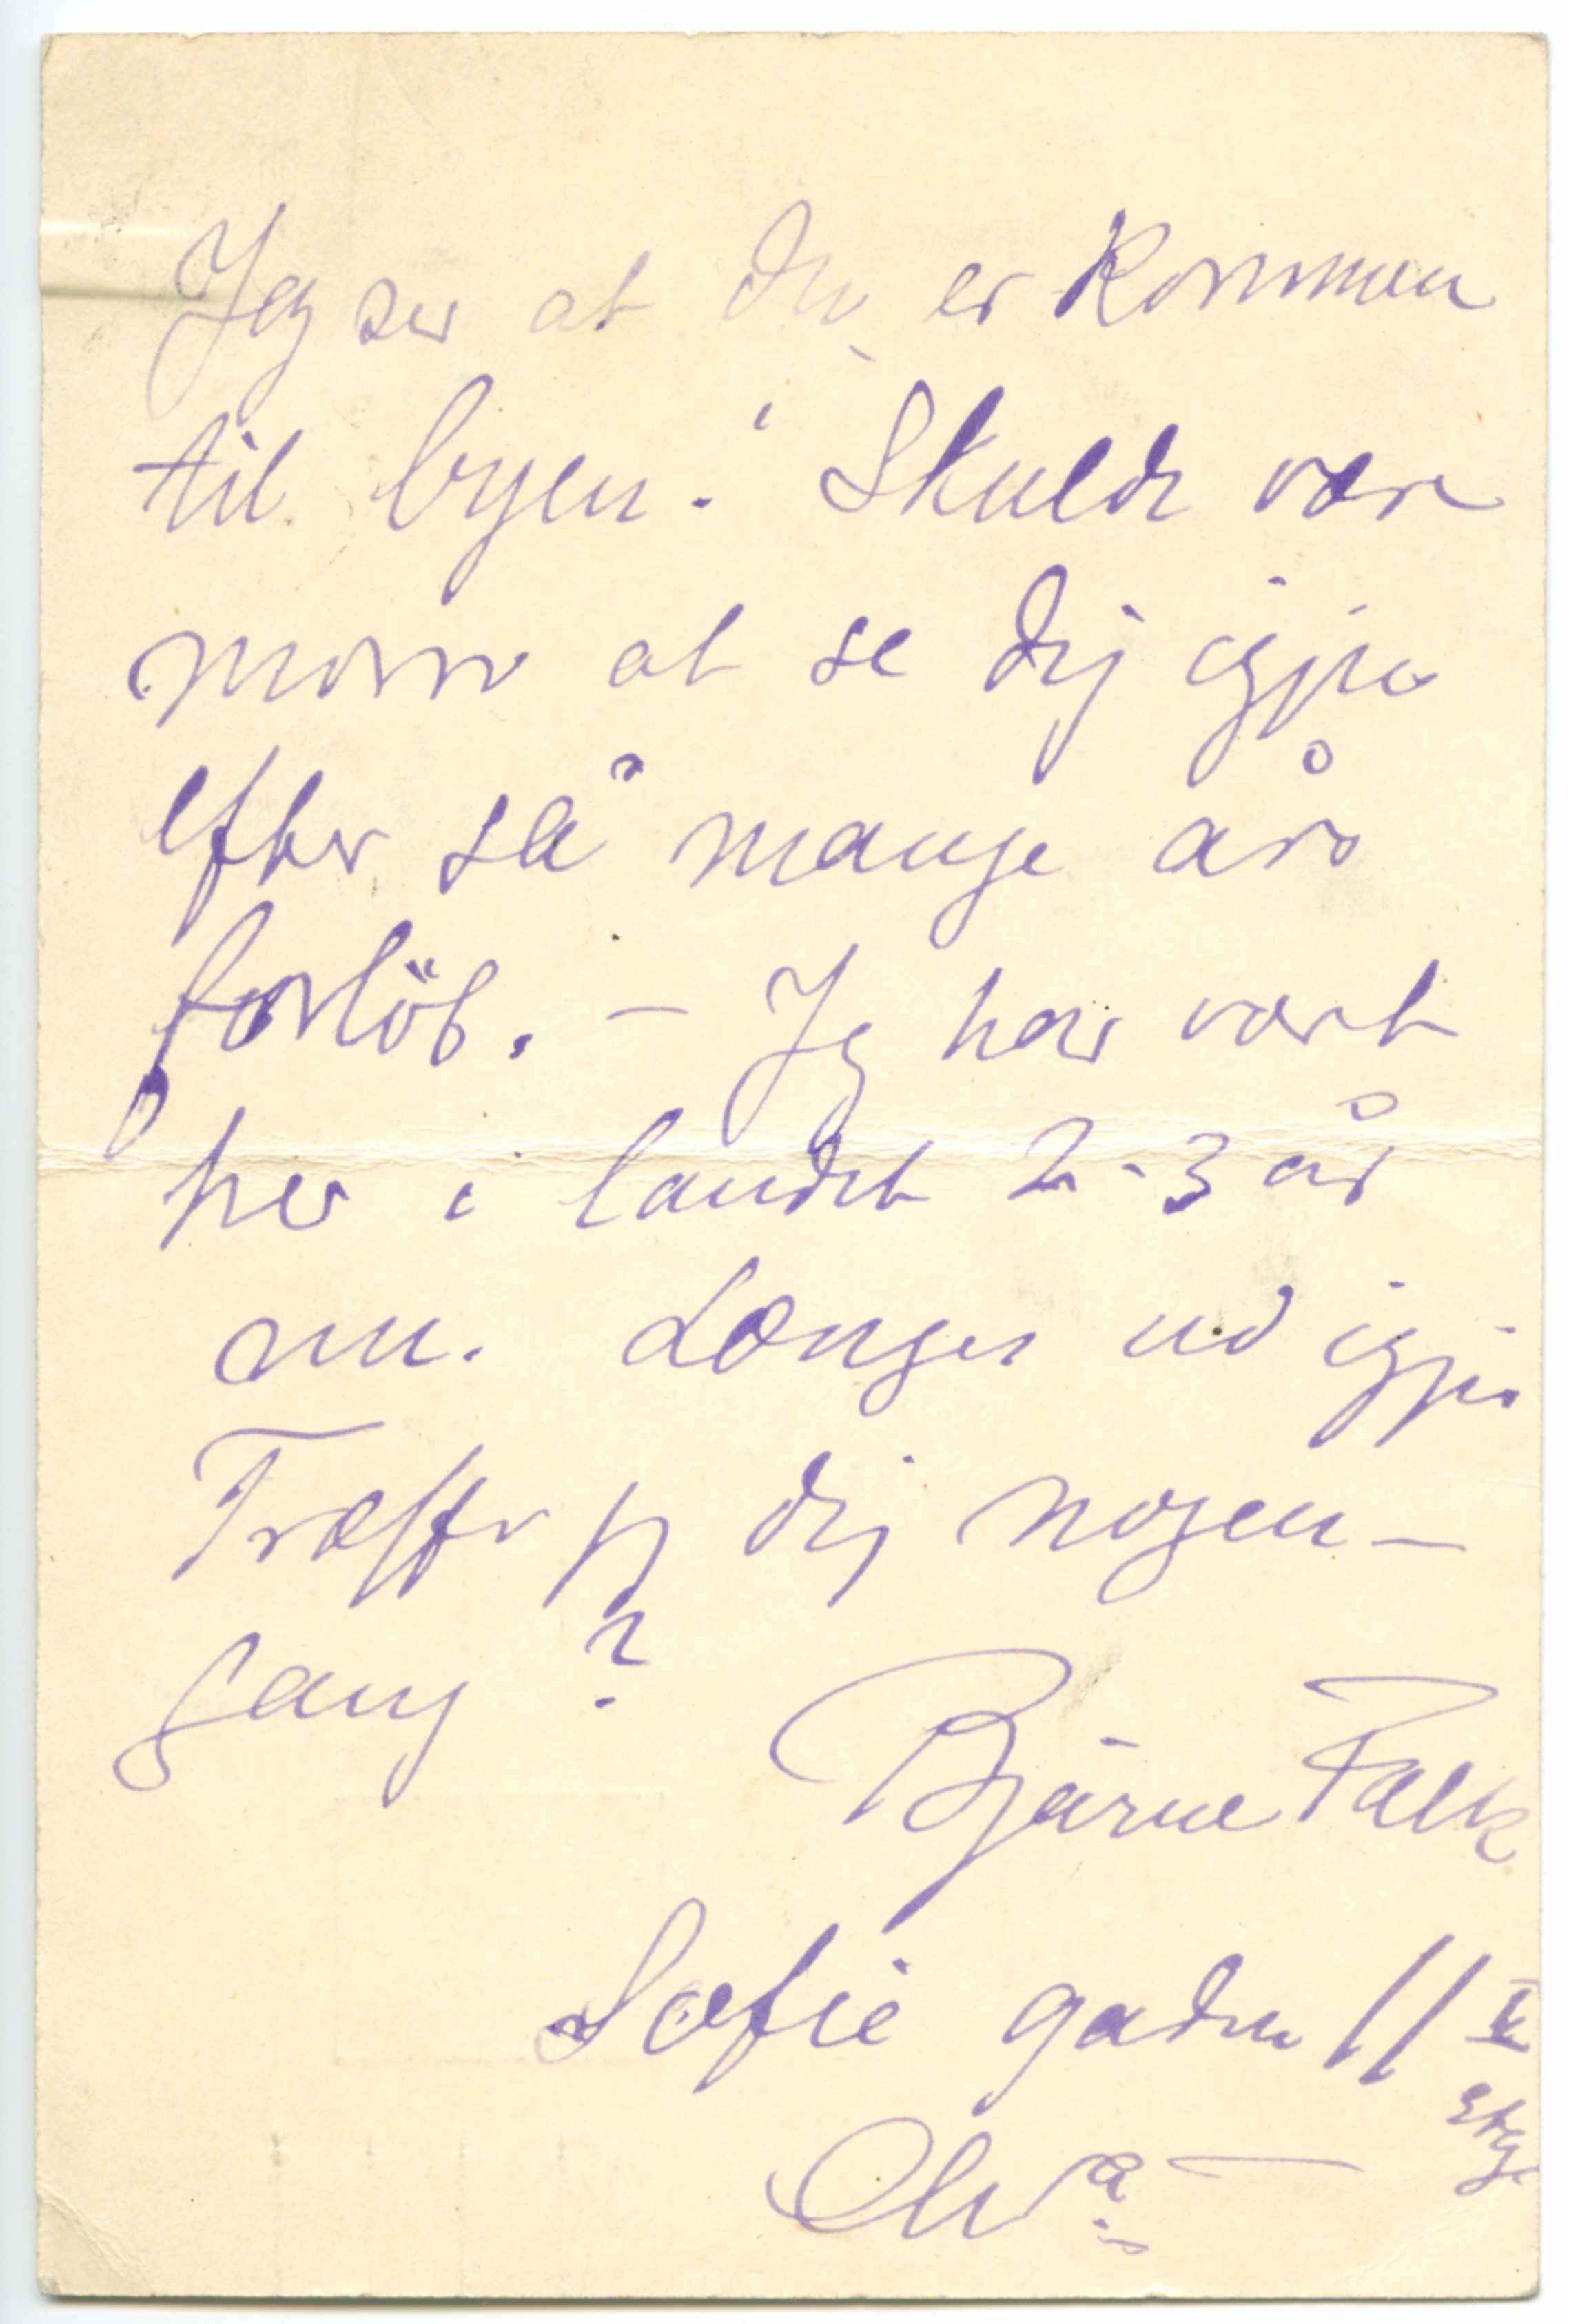 Jeg ser at du er kommen
til byen. Skulde være
morro at se dig igjen
efter så mange års
forløb. – Jeg har vært
her i landet 2-3 år
nu. Længes ud igjen
Træffer jeg dig nogen-
gang?
Bjarne Falk
Sofie gaden 11 V
etg.
Chr.a